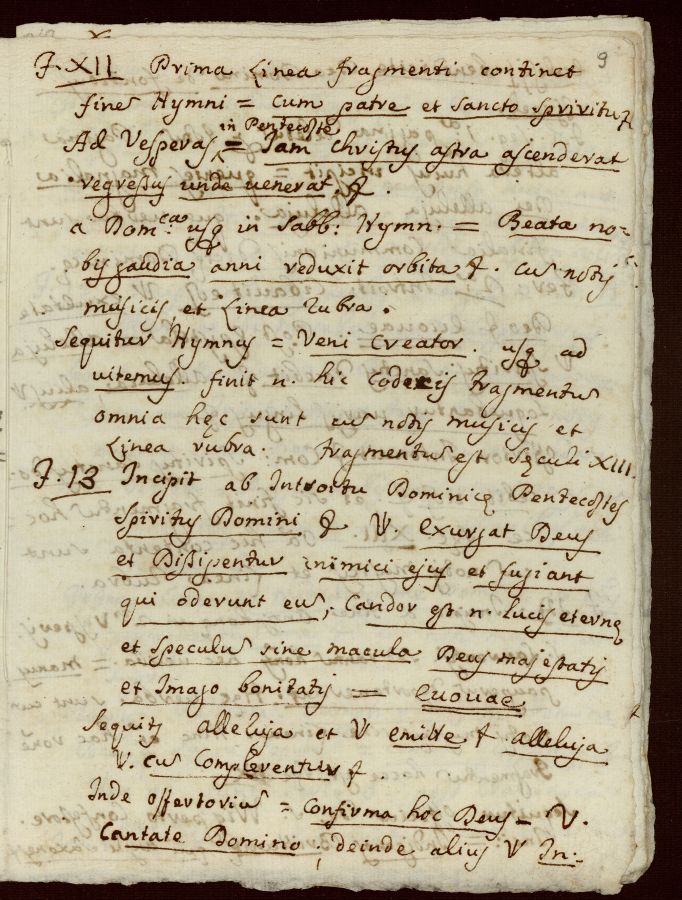 9
F. XII Prima Linea fragmenti continet
fine Hymni = cum patre et sancto spiritu &
Ad Vesperas in Pentecoste = Jam christus astra ascenderat
regressus unde venerat. &.
a Dom.ca usq in Sabb: Hymn. = Beata no-
bis gaudia anni reduxit orbita &. cu notis
musicis, et Linea rubra.
Sequitur Hymnus = Veni Creator. usq ad
vitemus. finit n. hic codicis fragmentu
omnia hęc sunt cu notis musicis et
Linea rubra. fragmentu est Sęculi XIII.
F. 13 Incipit ab Introitu Dominicę Pentecostes
Spiritus Domini & V. Exurgat Deus
et Dissipentur inimici ejus et fugiant
qui oderunt eu; Candor est n. lucis eternę
et speculu sine macula Deus majestatis
et Imago bonitatis = euouae
Sequitr alleluja et V emitte & alleluja
V. cu Complerentur &.
Inde offertoriu = Confirma hoc Deus - V.
Cantate Domino; deinde alius V In: